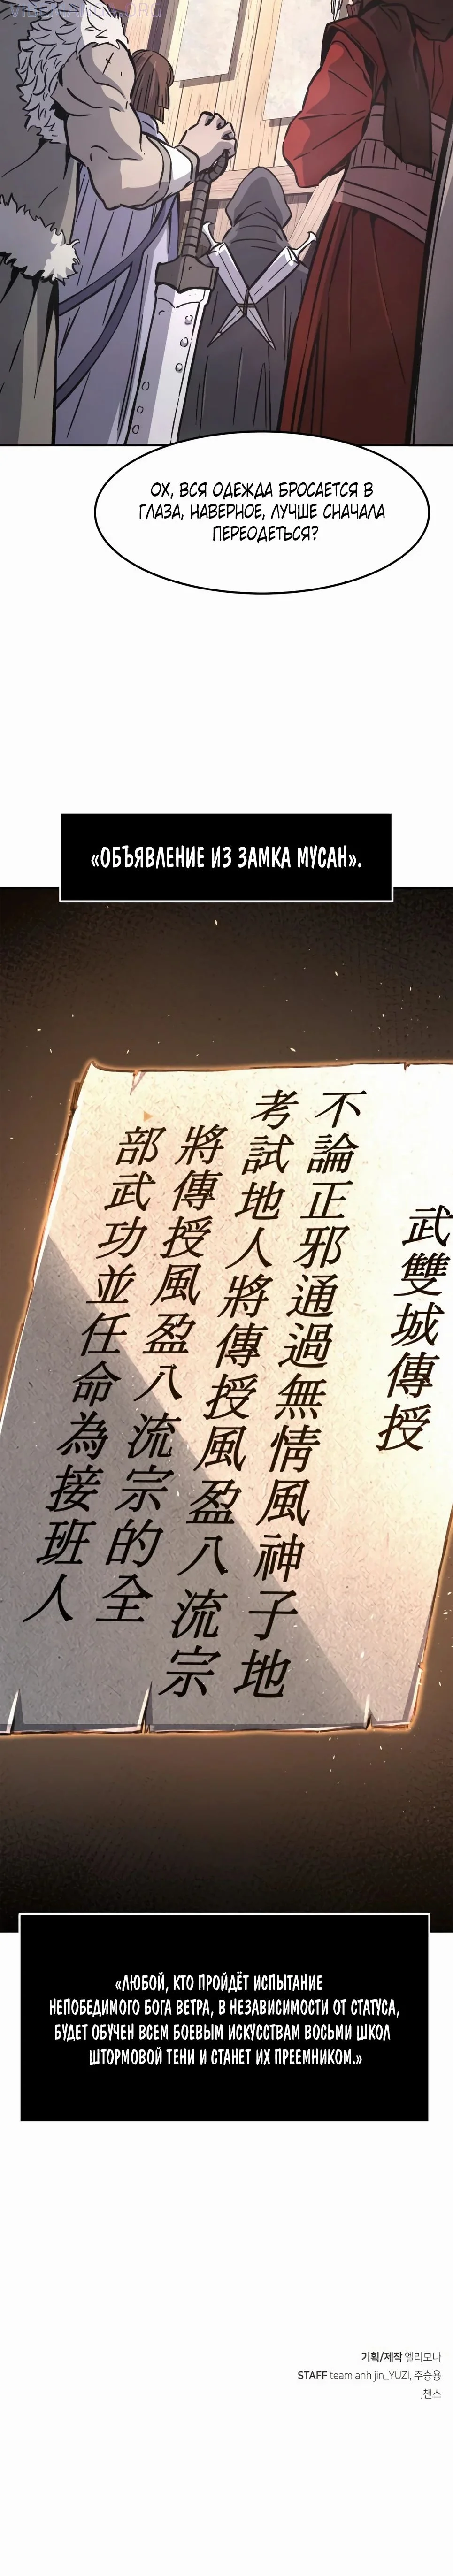 ОХ, ВСЯ ОДЕЖДА БРОСАЕТСЯ В
ГЛАЗА, НАВЕРНОЕ, ЛУЧШЕ СНАЧАЛА
ПЕРЕОДЕТЬСЯ?
«ОБЪЯВЛЕНИЕ ИЗ ЗАМКА МУСАН».
武雙城傳授
不論正邪通過無情風神子地
考試地人將傳授風盈八流宗
將傳授風盈八流宗的全
部武功並任命為接班人
«ЛЮБОЙ, КТО ПРОЙДЁТ ИСПЫТАНИЕ
НЕПОБЕДИМОГО БОГА ВЕТРА, В НЕЗАВИСИМОСТИ ОТ СТАТУСА,
БУДЕТ ОБУЧЕН ВСЕМ БОЕВЫМ ИСКУССТВАМ ВОСЬМИ ШКОЛ
ШТОРМОВОЙ ТЕНИ И СТАНЕТ ИХ ПРЕЕМНИКОМ.»
기획/제작 엘리모나
STAFF team anh jin_YUZI, 주승용
,챈스